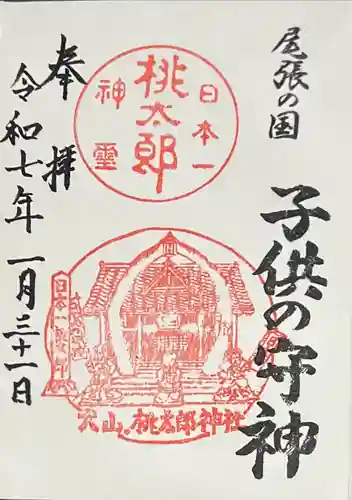 尾張の国
子供の守神
奉拝
日本一
桃太郎
神霊
犬山。桃太郎神社
令和七年一月三十一日